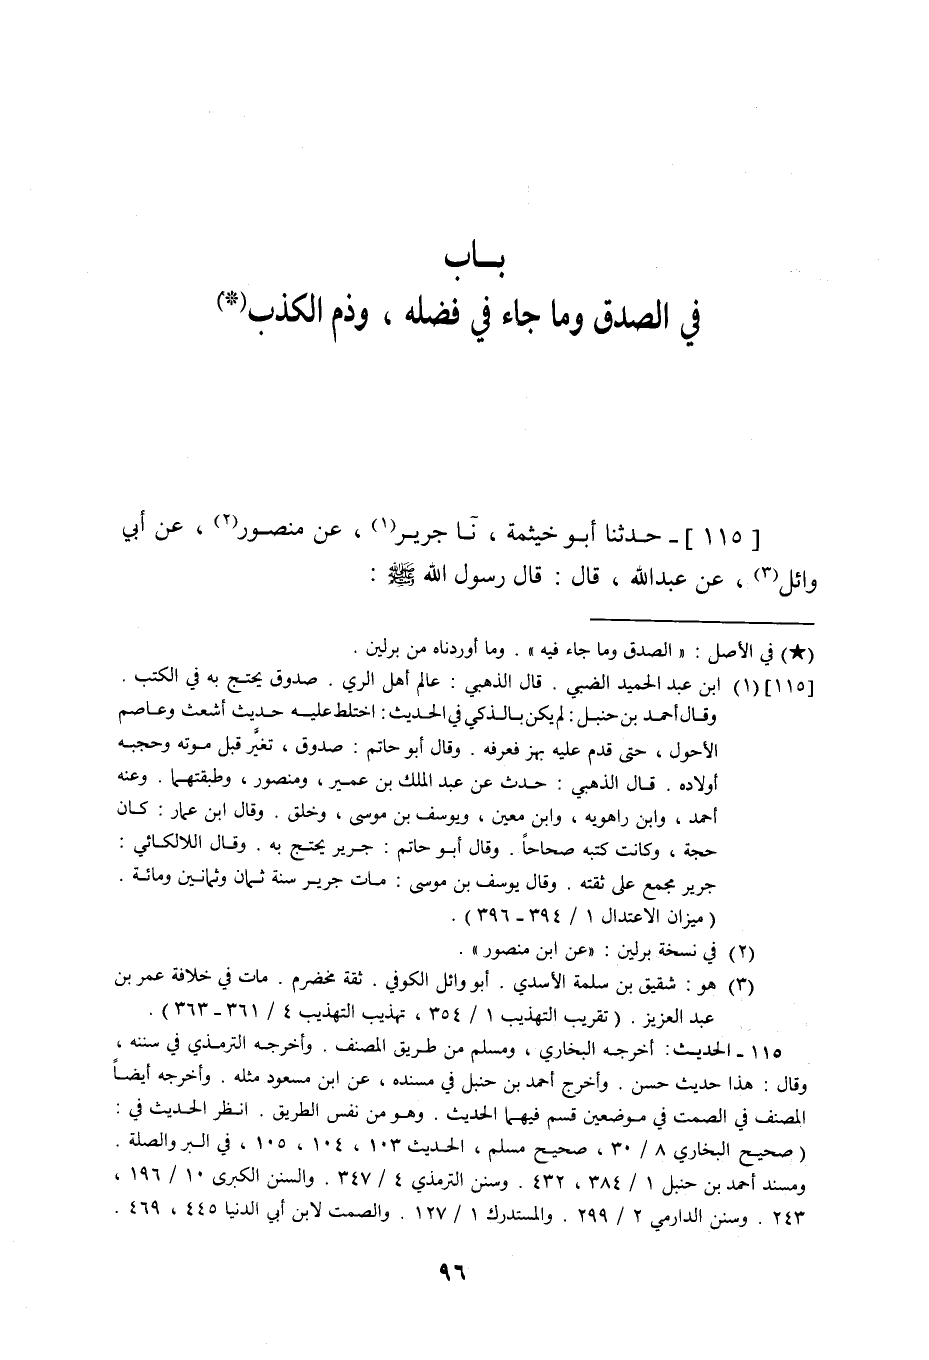 بـاب
في الصدق وما جاء في فضله ، وذم الكذب(*)
[ ١١٥ ] ـ حـدثنا أبـو خيثمة ، نَـا جريـر(١) ، عن منصـور(٢) ، عن أبي
وائل(٣) ، عن عبدالله ، قال : قال رسول الله ﷺ :
(★) في الأصل : « الصدق وما جاء فيه » . وما أوردناه من برلين .
[١١٥] (١) ابن عبد الحميد الضبي . قال الذهبي : عالم أهل الري . صدوق يحتج به في الكتب .
وقـال أحمد بن حنبل : لم يكن بـالذكي في الحديث : اختلط عليـه حـديث أشعث وعـاصم
الأحول ، حتى قدم عليه بهز فعرفه . وقال أبو حاتم : صدوق ، تغيَّر قبل مـوته وحجبـه
أولاده . قـال الذهبي : حـدث عن عبد الملك بن عمـير ، ومنصور ، وطبقتهـما . وعنه
أحمد ، وابن راهويه ، وابن معين ، ويوسف بن موسى ، وخلق . وقال ابن عمار : كـان
حجة ، وكانت كتبه صحاحاً . وقال أبـو حاتم : جـرير يحتـج به . وقـال اللالكـائي :
جرير مجمع على ثقته . وقال يوسف بن موسى : مـات جريـر سنة ثـمان وثمانـين ومائـة .
( ميزان الاعتدال ١ / ٣٩٤ ـ ٣٩٦ ) .
(٢) في نسخة برلين : «عن ابن منصور» .
(٣) هو : شقيق بن سلمة الأسدي . أبو وائل الكوفي . ثقة مخضرم . مات في خلافة عمر بن
عبد العزيز . ( تقريب التهذيب ١ / ٣٥٤ ، تهذيب التهذيب ٤ / ٣٦١ ـ ٣٦٣ ) .
١١٥ ـ الحديث : أخرجه البخاري ، ومسلم من طـريق المصنف . وأخرجـه الترمـذي في سننه ،
وقال : هذا حديث حسن . وأخرج أحمد بن حنبل في مسنده ، عن ابن مسعود مثله . وأخرجه أيضـاً
المصنف في الصمت في مـوضعين قسم فيهـما الحديث . وهـو من نفس الطريق . انـظر الحديث في :
( صحيح البخاري ٨ / ٣٠ ، صحيح مسلم ، الحديث ١٠٣ ، ١٠٤ ، ١٠٥ ، في الـبر والصلة .
ومسند أحمد بن حنبل ١ / ٣٨٤ ، ٤٣٢ . وسنن الترمذي ٤ / ٣٤٧ . والسنن الكبرى ١٠ / ١٩٦ ،
٢٤٣ . وسنن الدارمي ٢ / ٢٩٩ . والمستدرك ١ / ١٢٧ . والصمت لابن أبي الدنيا ٤٤٥ ، ٤٦٩ .
٩٦